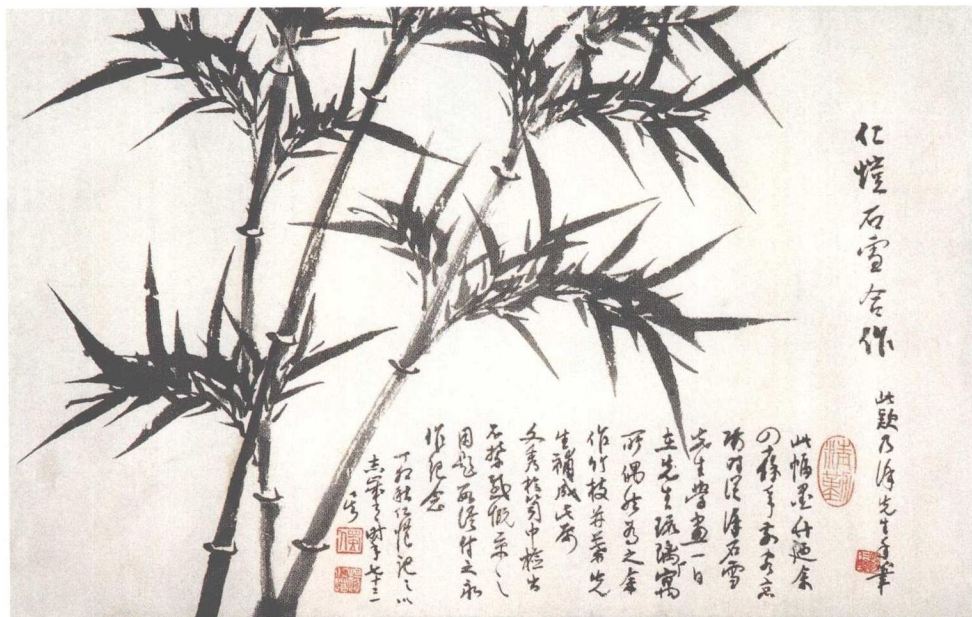 仁愷石雪合作
此款乃徐先生手筆
此幅墨竹迺余
四十餘年前在京
師時從徐石雪
先生學畫一日
在先生琉璃寓
所偶然為之余
作竹枝并葉先
生補成此局
文秀於笥中檢出
不禁感慨系之
因題付之永
作紀念
丁卯秋仁愷記之以
志歲月時年七十三